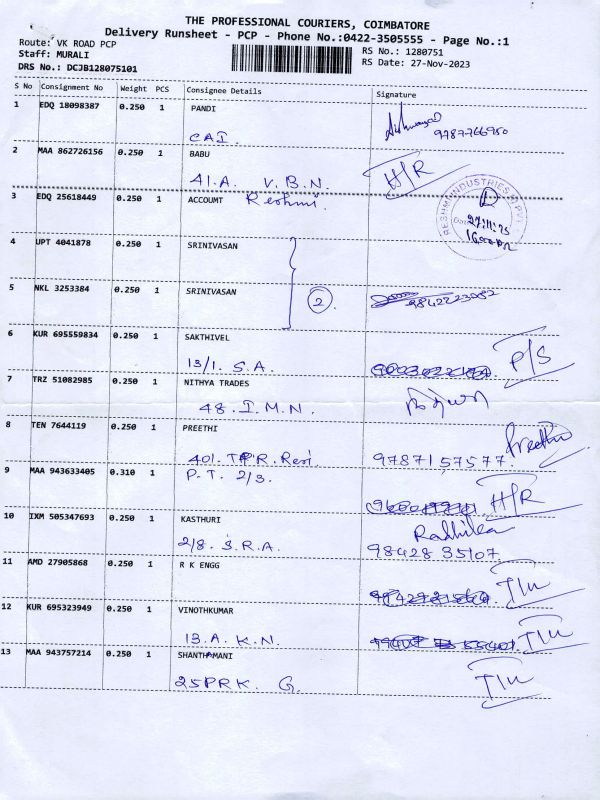 THE PROFESSIONAL COURIERS, COIMBATORE
Delivery Runsheet - PCP - Phone No.:0422-3505555 - Page No.:1
Route: VK ROAD PCP
RS No.: 1280751
Staff: MURALI
RS Date: 27-Nov-2023
DRS No.: DCJB128075101
S No Consignment No Weight PCS Consignee Details Signature
1 EDQ 18098387 0.250 1 PANDI
CAI. 9787766950
2 MAA 862726156 0.250 1 BABU
41.A V.B.N. H/R
3 EDQ 25618449 0.250 1 ACCOUMT Reshmi.
RESHMI INDUSTRIES
27.11.23
4 UPT 4041878 0.250 1 SRINIVASAN
5 NKL 3253384 0.250 1 SRINIVASAN 2 9842223082
6 KUR 695559834 0.250 1 SAKTHIVEL
13/1. S.A. P/S
7 TRZ 51082985 0.250 1 NITHYA TRADES
48.I.M.N.
8 TEN 7644119 0.250 1 PREETHI Preethi
401. TPR. Resi. 9787157577.
9 MAA 943633405 0.310 1 P.T. 2/3.
H/R
10 IXM 505347693 0.250 1 KASTHURI Radhika
2/8. S.R.A. 98428 35107.
11 AMD 27905868 0.250 1 R K ENGG
12 KUR 695323949 0.250 1 VINOTHKUMAR
13.A.K.N.
13 MAA 943757214 0.250 1 SHANTHAMANI
25PRK. G.